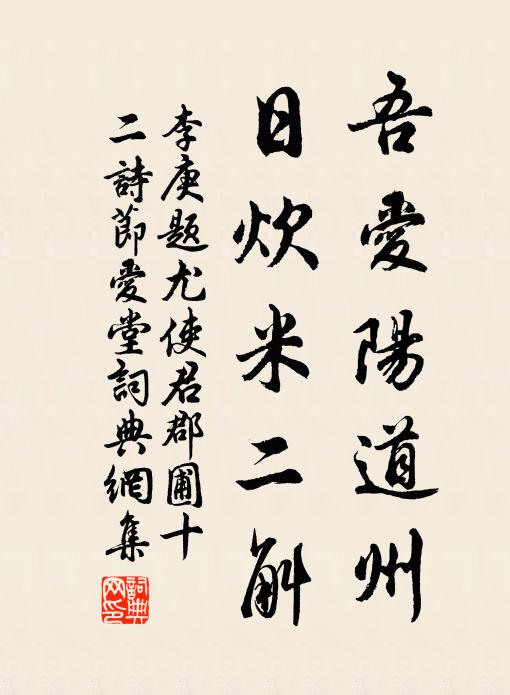 吾愛陽道州
日炊米二斛
李庚題尤使君郡圃十
二詩節愛堂詞典網集
詞典網印